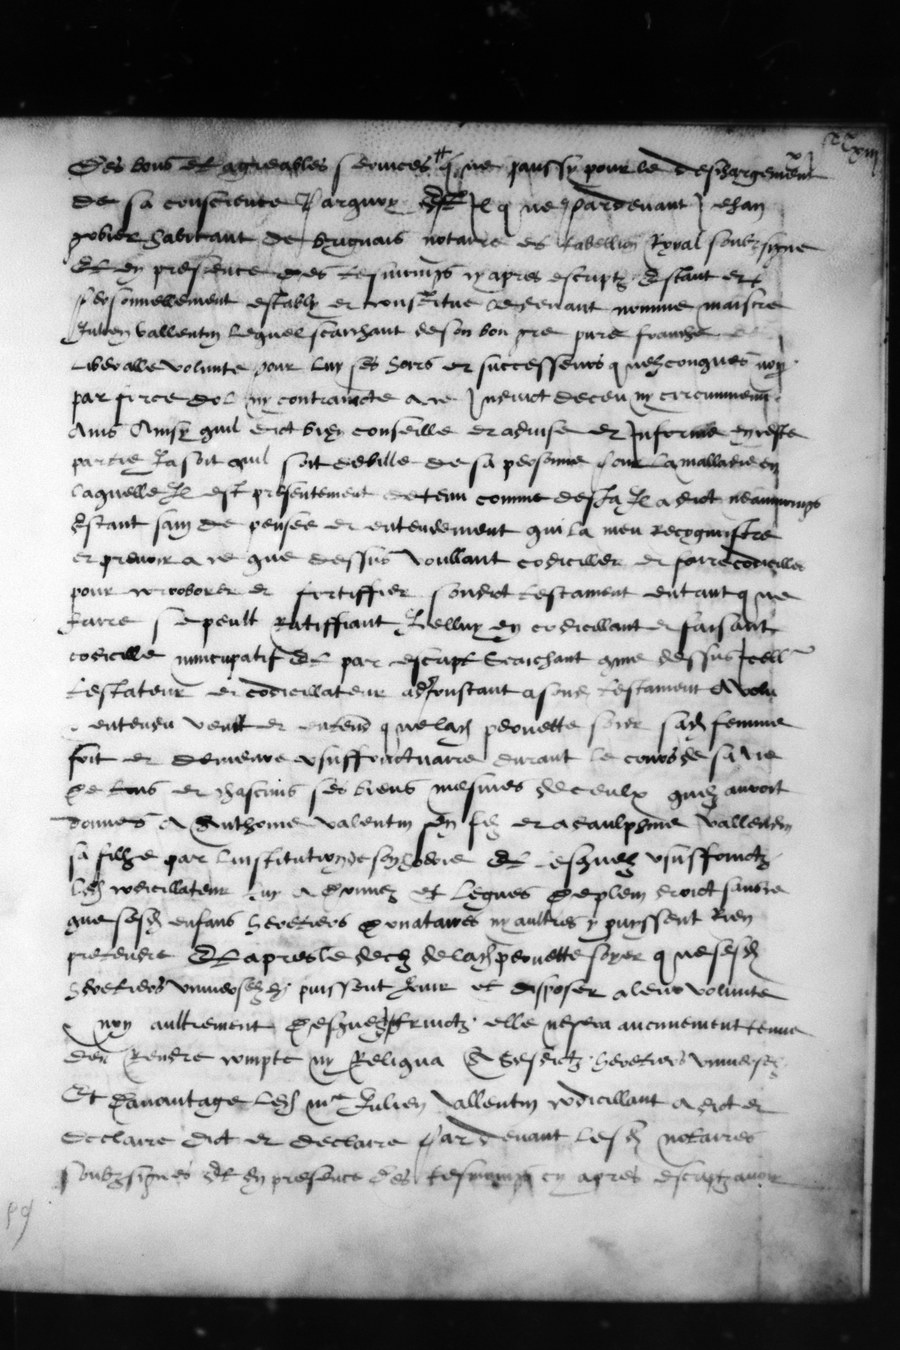 des bons et agreables services que aussy pour le deschargement
de sa conscience Parquoy est il que Pardevant Jehan
gobier habitant de brignais notaire et tabellion Royal soubzsigne
Et en presence des tesmoings cy apres escriptz Estant et
personnellement estably et constitue cedevant nomme maistre
Julien vallentin lequel scaichant de son bon gre pure franche et
liberalle volunte pour luy ses hoirs et successeurs quelzconques non
par force dol ny contraincte a ce induict deceu ny circumvenu
Ains Ainsy quil dict bien conseille et advise et Informe
partie Ja soit quil soit debille de sa personne pour la malladie en
laquelle Il est presentement detenu comme Il a dict neanmoings
Estant sain de pensee et entendement qui la meu Recognoistre
et prevoir a ce que dessus Voullant codiciller et faire codicille
pour corroborer et fortiffier sondict testament entant que
faire se peult Ratiffiant Icelluy en codicillant et faisant
codicille nuncupatif Et par escript Scaichant que dessus Icell
testateur et codicillateur adjoustant a son testament A volu
entendu veult et entend que lad peronette soier sad femme
soit et demeure usuffructuaire durant le cours de sa vie
De tous et chascuns ses biens mesmes de ceulx quil avoit
donnes A Anthoine Valentin son filz et a daulphine Vallentin
sa fille par linstitution de son herede Et desquelz usuffruictz
led codicillateur luy a donnez et legues De plein droict sans ce
que sesd enfans heretiers Donataires ny aultres y puyssent Rien
pretendre Et apres le deces de lad peronette soyer que sesd
heretiers universelz puissent Jouir et disposer a leur volunte
noy aultrement Desquelz fruictz elle ne sera aucunement tenue
den Rendre compte ny Reliqua A Sesdictz heretiers universelz
Et Davantage led mre Julien Vallentin codicillant a dict et
declaire dict et declaire Pardevant lesd notaires
soubzsignes Et en presence des tesmoings cy apres escriptz avoir